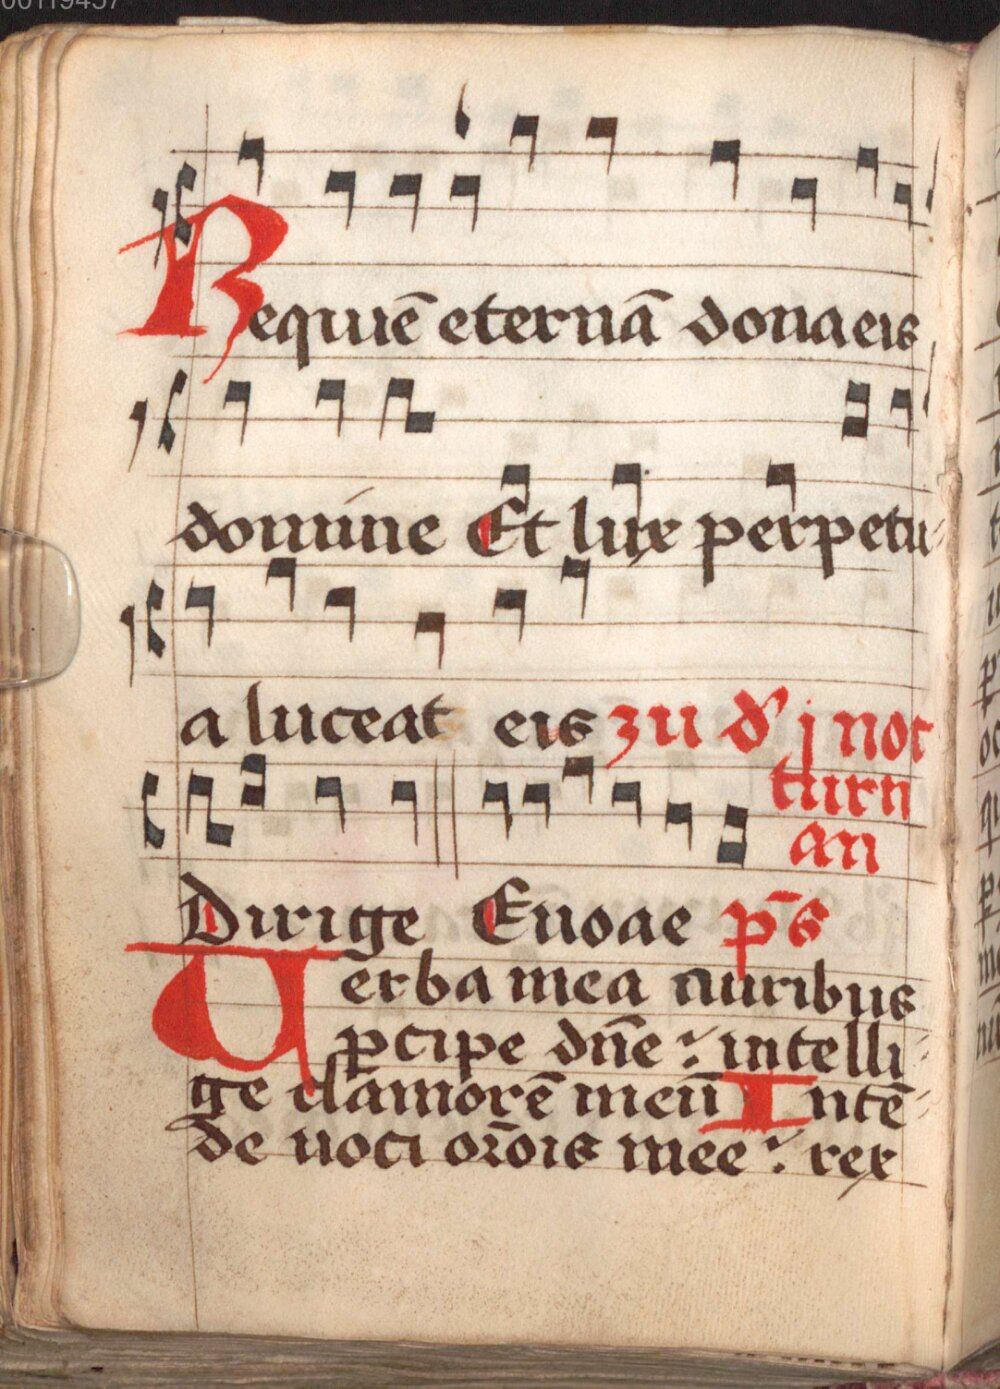 00119457
Requiē eternā dona eis
domine Et lux perpetu-
a luceat eis zu d' j noc
turn
an
Dirige Euoae p̄s
Uerba mea auribus
ꝑcipe dn̄e : intelli-
ge clamorē meū Intē-
de uoci or̄ois mee : rex